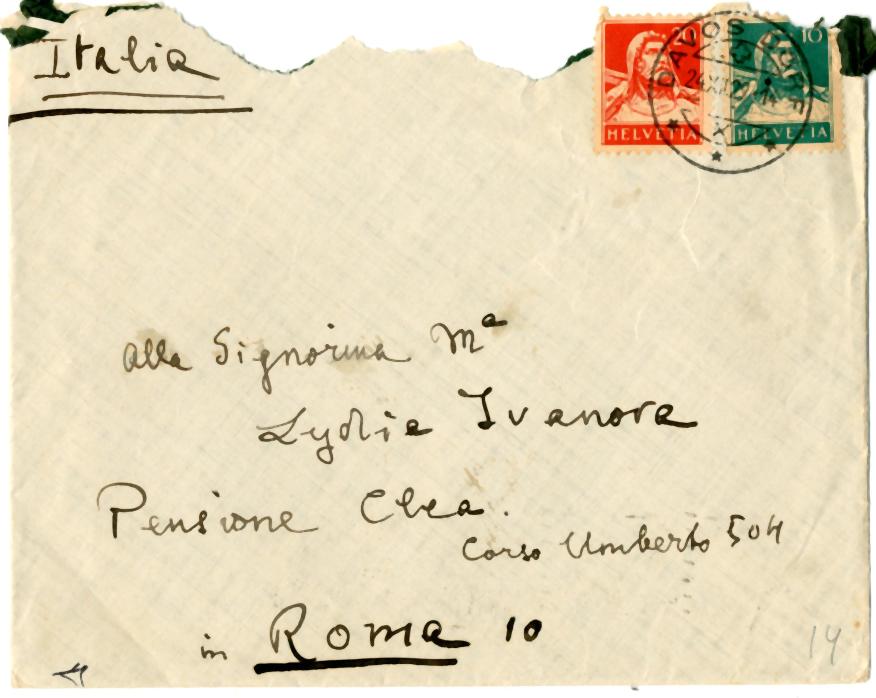 Italia
10
HELVETIA
HELVETIA
DAVOS
Alla Signorina Mᵃ
Lydia Ivanova
Pensione Clea.
Corso Umberto 504
in Roma 10
14